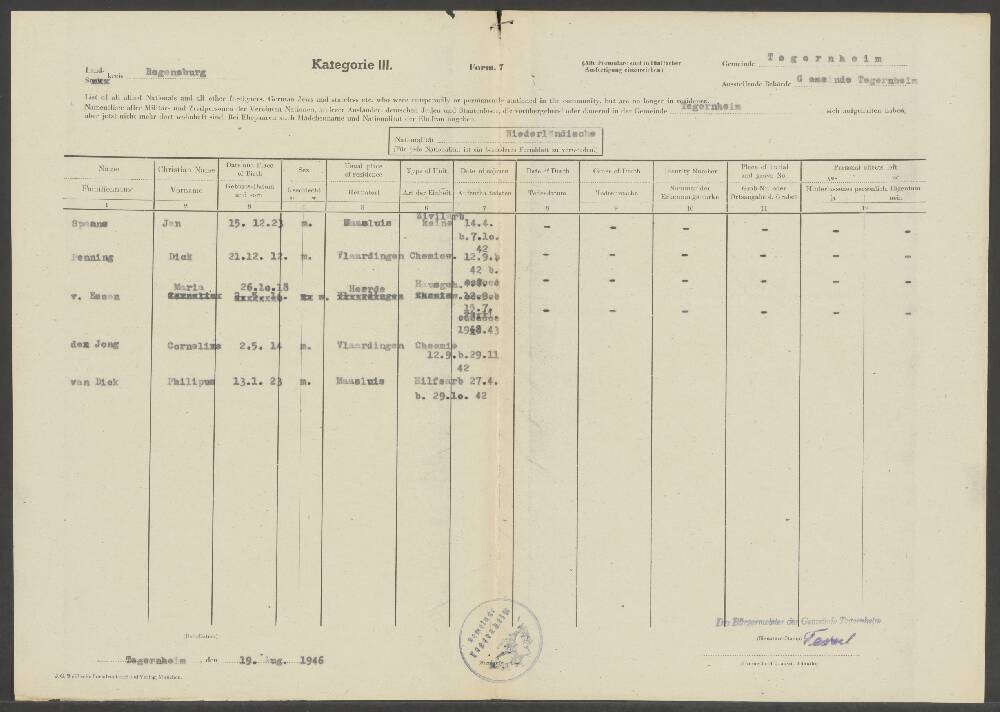 Land-
Stadt kreis Regensburg
Kategorie III.
Form. 7
(Alle Formulare sind in
Ausfertigung einzureichen)
Gemeinde Tegernheim
Ausstellende Behörde Gemeinde Tegernheim
List of all allied Nationals and all other foreigners, German Jews and stateless etc. who were temporarily or permanently stationed in the community, but are no longer in residence.
Namenliste aller Militär- und Zivilpersonen der Vereinten Nationen, anderer Ausländer, deutschen Juden und Staatenlosen, die vorübergehend oder dauernd in der Gemeinde Tegernheim sich aufgehalten haben,
aber jetzt nicht mehr dort wohnhaft sind. Bei Ehepaaren auch Mädchenname und Nationalität der Ehefrau angeben.
Nationalität Niederländische
(Für jede Nationalität ist ein besonderes Formblatt zu verwenden.)
Name Christian Name Date and Place of Birth Sex Usual place of residence Type of Unit Date of sojourn Date of Death Cause of Death Identity Number Place of burial and grave No. Personal effects left yes no
Familienname Vorname Geburts-Datum und -ort Geschlecht m w Heimatort Art der Einheit Aufenthaltsdaten Todesdatum Todesursache Nummer der Erkennungsmarke Grab-Nr. oder Ortsangabe d. Grabes Hinterlassenes persönlich. Eigentum ja nein
1 2 3 4 5 6 7 8 9 10 11 12
Zivilarb.
Spaans Jan 15. 12.23 m. Maasluis keine 14.4. - - - - - -
b.7.1o.
42
Penning Dick 21.12. 12. m. Vlaardingen Chemiew. 12.9.b - - - - - -
42 b.
Maria 26.1o.18 Heerde Hausgeh. - - - - - -
v. Essen w.
15.7. - - - - - -
1943
den Jong Cornelius 2.5. 14 m. Vlaardingen Chemie
12.9.b.29.11
42
van Dick Philipus 13.1. 23 m. Maasluis Hilfsarb 27.4.
b. 29.1o. 42
Gemeinde Tegernheim
Der Bürgermeister der Gemeinde Tegernheim
(Ort/Datum)
Tegernheim , den 19. Aug. 1946